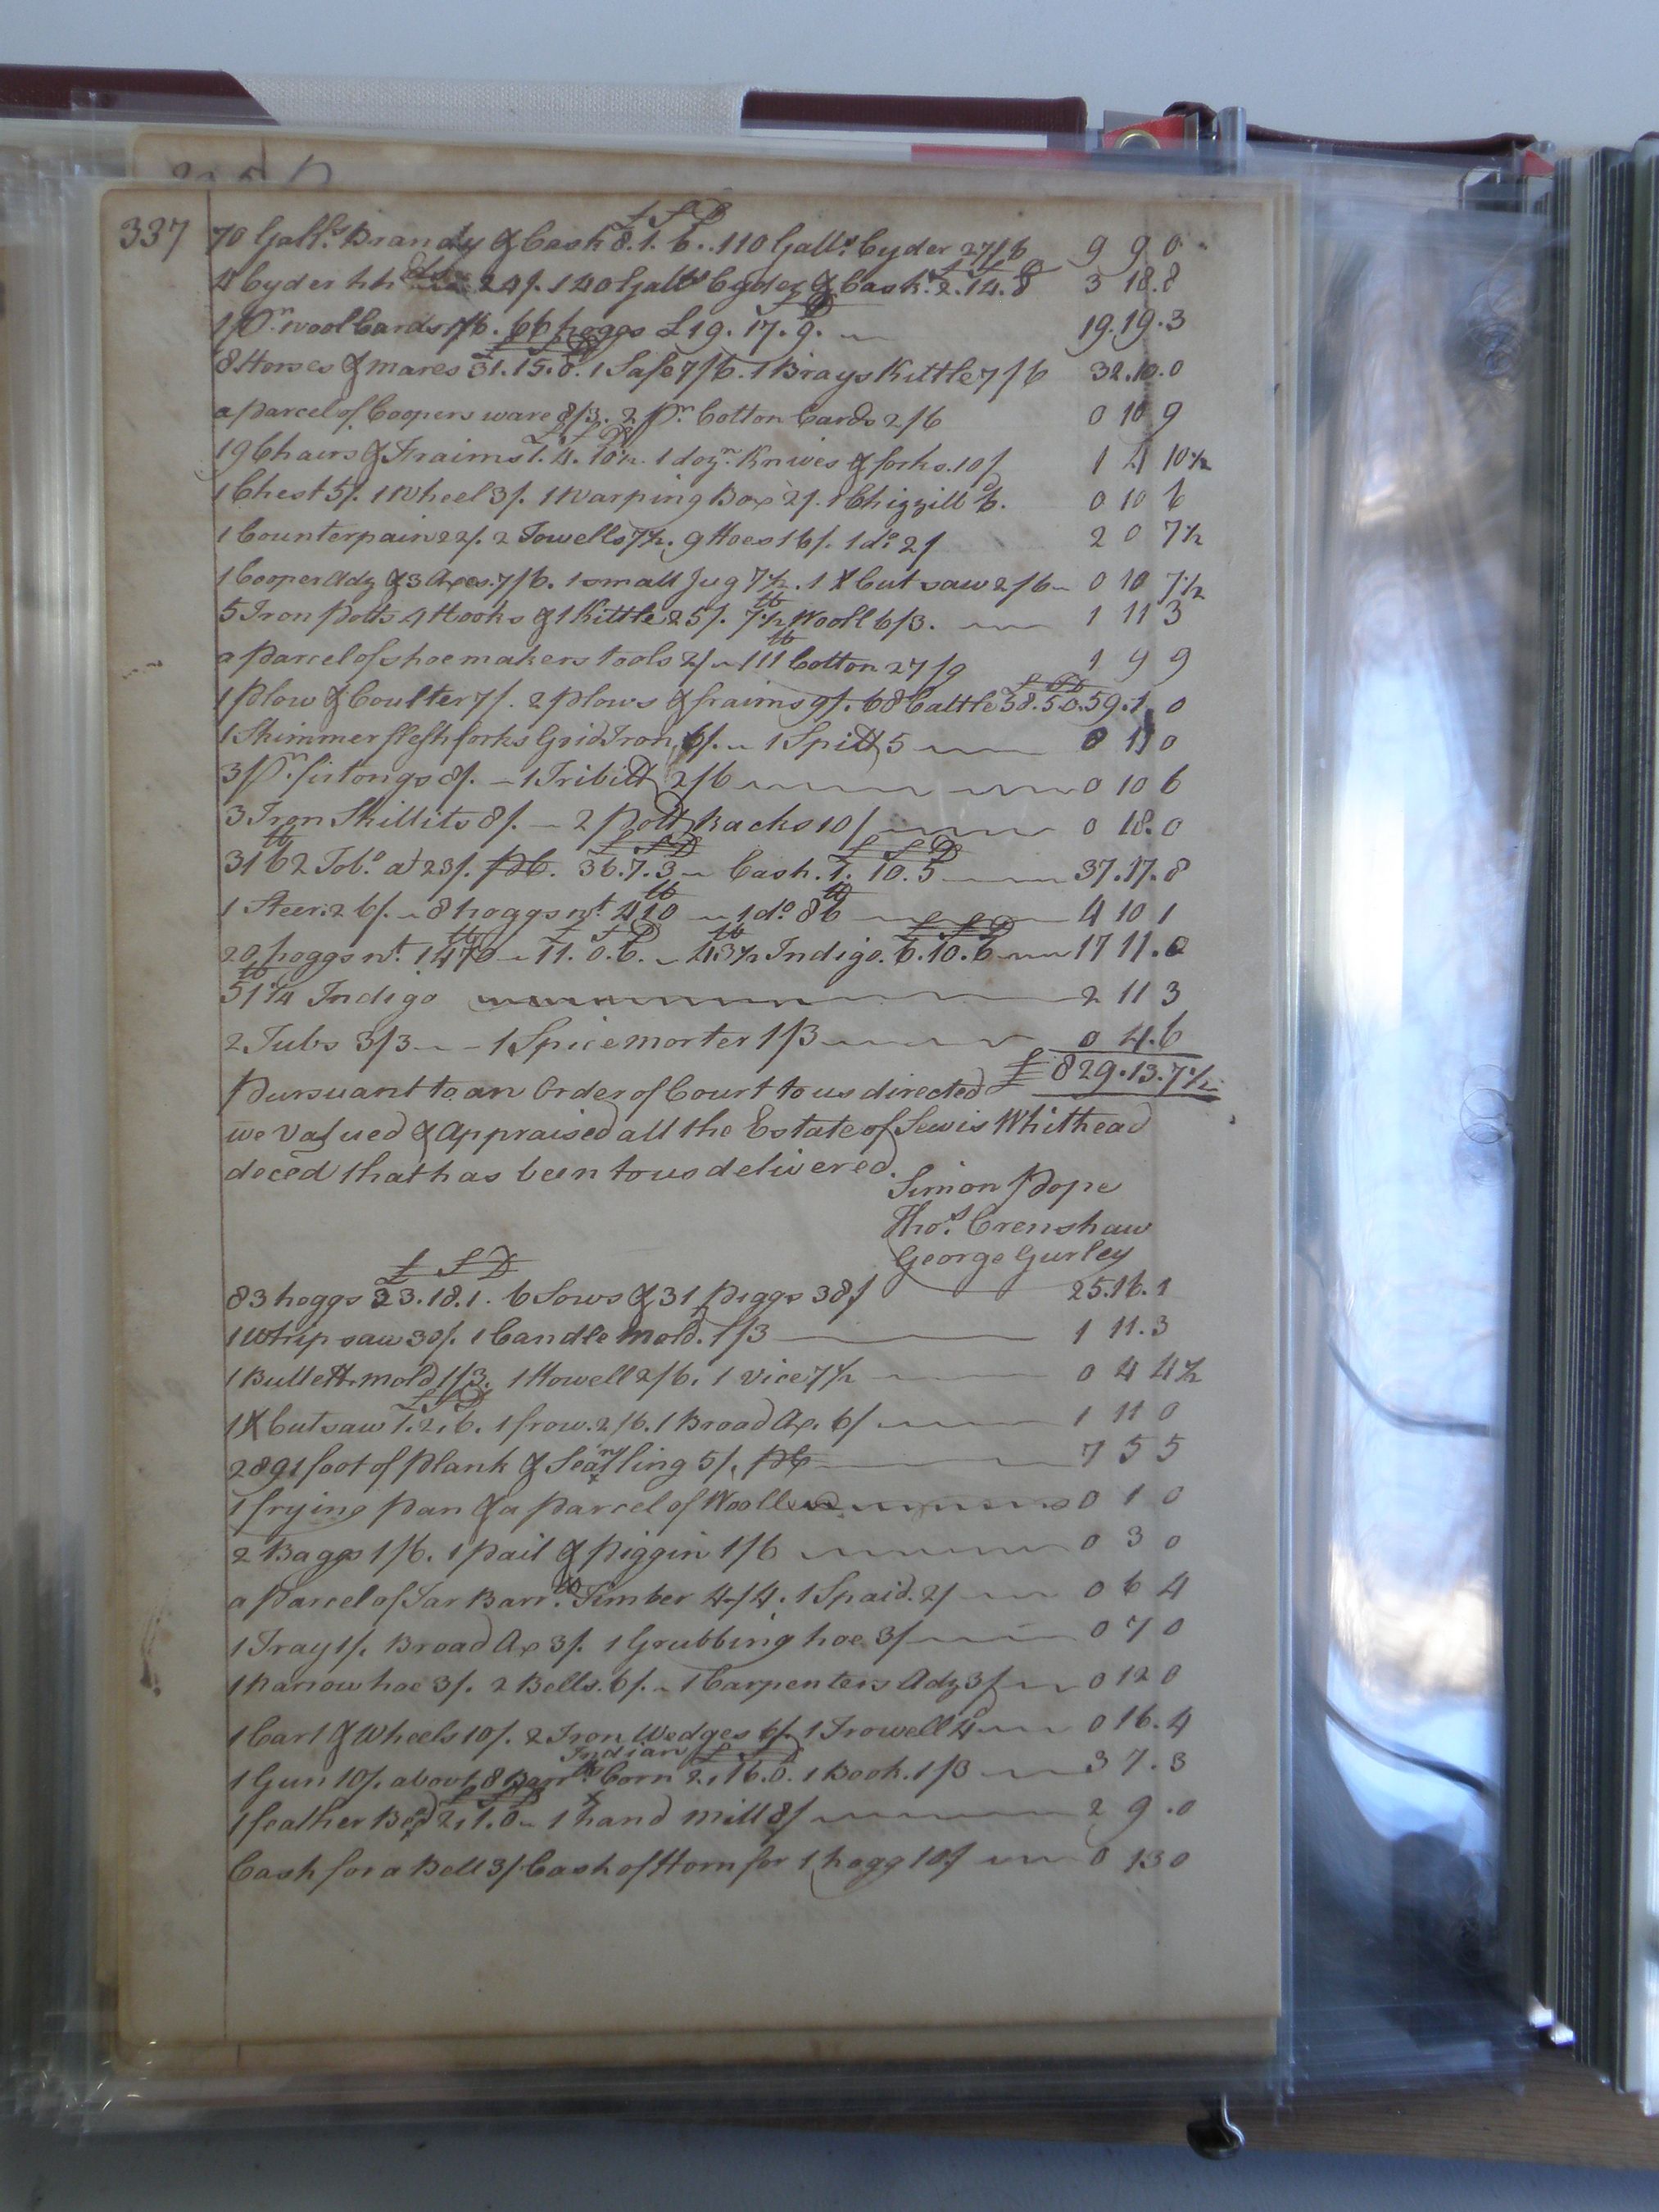 337
£ S D
70 Galls. Brandy & Cask 8.1.6..110 Galls. Cyder 27/6 9 9 0
£ S D
4 Cyder hhds 24/. 140 Galls Cyder & Cask. 2.14.8 3 18.8
1 pr. wool Cards 1/6. 66 hoggs £19.17.9. 19.19.3
£ S D
8 Horses & mares 31.15.0. 1 Safe 7/6. 1 Brays Kittle 7/6 32.10.0
a parcel of Coopers ware 8/3. 2 pr. Cotton Cards 2/6 0 10 9
£ S D
19 Chairs & Fraims 1.4.10½. 1 dozn. Knives & forks. 10/ 1 14 10½
1 Chest 5/. 1 Wheel 3/. 1 Warping Box 2/. 1 Chizzill 6d. 0 10 6
1 Counterpain 22/. 2 Towells 7½. 9 Hoes 16/. 1 do. 2/ 2 0 7½
1 Cooper Adz & 3 Axes. 7/6. 1 small Jug 7½. 1 X Cut saw 2/6 0 10 7½
5 Iron Potts 4 Hooks & 1 Kittle 25/. 7½ lb Wooll 6/3. 1 11 3
a parcel of shoemakers tools 2/ 111 lb Cotton 27/9 1 9 9
£ S D
1 Plow & Coulter 7/. 2 plows & fraims 9/. 68 Cattle 58.5.0. 59.1.0
1 Skimmer flesh forks Grid Iron, 6/. 1 Spitt 5 0 11 0
3 pr. firtongs 8/. 1 Tribitt 2/6 0 10 6
3 Iron Skillits 8/. 2 pott Racks 10/ 0 18.0
£ S D £ S D
3162 lb Tobo. at 23/. pC. 36.7.3 Cash. 1.10.5 37.17.8
1 Steer. 26/. 8 hoggs wt. 410 lb 1 do. 86 lb 4 10 1
£ S D £ S D
20 hoggs wt. 1470 lb 11.0.6. 43½ lb Indigo. 6.10.6 17 11.0
51¼ lb Indigo 2 11 3
2 Tubs 3/3 1 Spice morter 1/3 0 4.6
£ 829.13.7½
Pursuant to an Order of Court to us directed
we Valued & Appraised all the Estate of Lewis Whithead
deced that has been to us delivered.
Simon Pope
Thos. Crenshaw
George Gurley
£ S D
83 hoggs 23.18.1. 6 Sows & 31 piggs 38/ 25.16.1
1 Whip saw 30/. 1 Candle mold. 1/3 1 11.3
1 Bullett mold 1/3. 1 Howell 2/6. 1 Vice 7½ 0 4 4½
£ S D
1 X Cut saw 1.2.6. 1 frow. 2/6. 1 Broad Ax. 6/ 1 11 0
2891 foot of plank & Scantling 5/. pC 7 5 5
1 frying pan & a parcel of Wooll 0 1 0
2 Baggs 1/6. 1 pail & piggin 1/6 0 3 0
a parcel of Tar Barrls. Timber 4/4. 1 Spaid. 2/ 0 6 4
1 Tray 1/. Broad Ax 3/. 1 Grubbing hoe 3/ 0 7 0
1 narrow hoe 3/. 2 Bells. 6/. 1 Carpenters Adz 3/ 0 12 0
1 Cart & Wheels 10/. 2 Iron Wedges 6/. 1 Trowell 4d 0 16.4
Indian £ S D
1 Gun 10/. about 8 Barrls. Corn 2.16.0. 1 Book. 1/3 3 7.3
£ S D
1 feather Bed 2.1.0 1 hand mill 8/ 2 9.0
Cash for a Bell 3/ Cash of Horn for 1 hogg 10/ 0 13 0